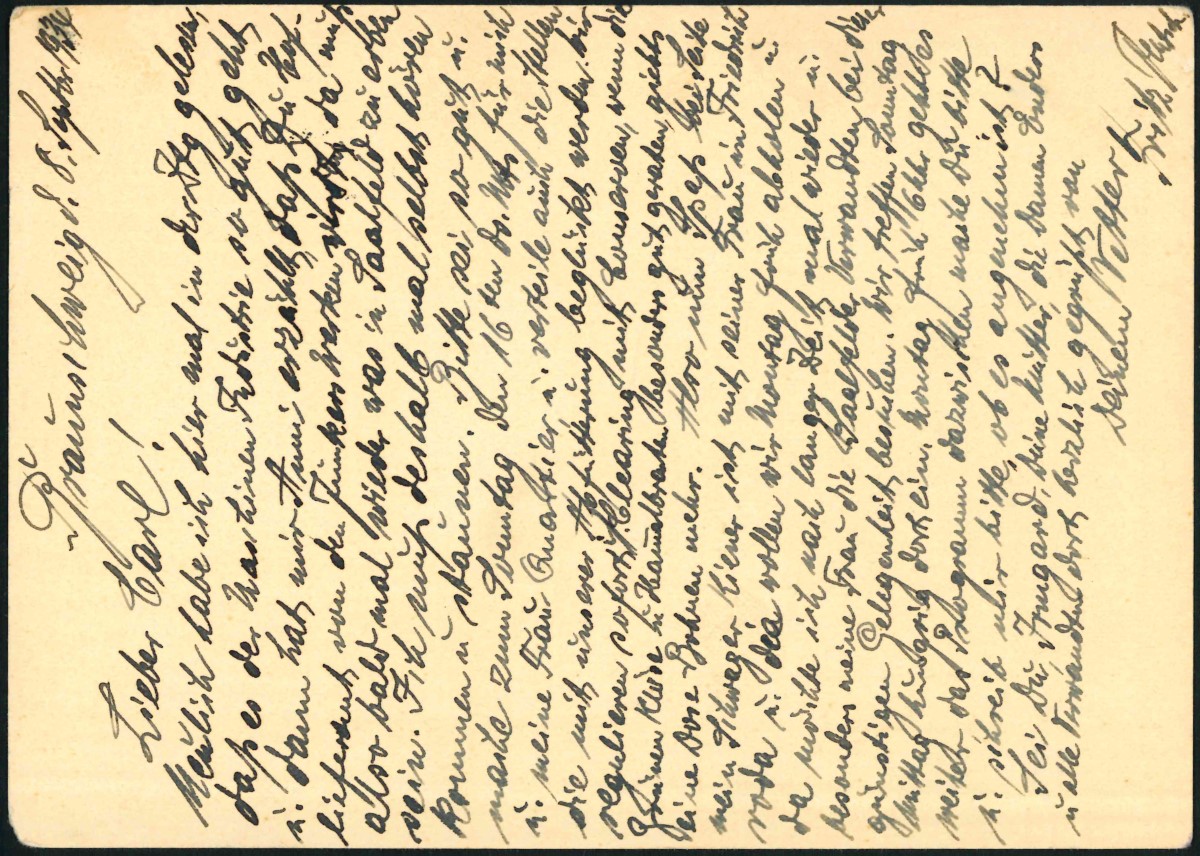 Braunschweig d. 8. Septbr.
Lieber Carl!
Neulich habe ich hier mal in der Ztg gelesen,
daß es der Maschinen Industrie so gut geht
u. dann hat mir Anni erzählt, daß Du Hof-
lieferant von den Junkers Werken wirst, da muß
also bald mal wieder was in Saalfeld zu erben
sein. Ich muß deshalb mal selbst hören
kommen u. staunen. Bitte sei so gut u.
mache zum Sonntag den 16ten ds. Mts für mich
u. meine Frau Quartier u. verteile auch die Stellen
die mit unserer Abfütterung beglückt werden. Wir
regulieren sofort p. Clearing mit Conserven, wenn die
Grünen Klöse u. Hammelbraten besonders gut geraten, giebts
eine Dose Bohnen mehr. Also nun Spaß bei Seite
mein Schwager Kiener ist mit seiner Frau in Friedrich
roda u. die wollen wir Montag früh abholen u.
da möchte ich nach langer Zeit mal wieder u.
besonders meine Frau die Saalfelder Verwandten bei dieser
günstigen Gelegenheit besuchen. Wir treffen Sonntag
Mittag hungrig dort ein, Montag früh 6 Uhr geht es
weiter das Programm dazwischen mache Du bitte
u. schreib mir bitte, ob es angenehm ist?
Sei Du, Irmgard, Deine Mutter, die Damen Enders
u. alle Verwandten dort herzlich gegrüßt von
deinem Vetter
Fritz